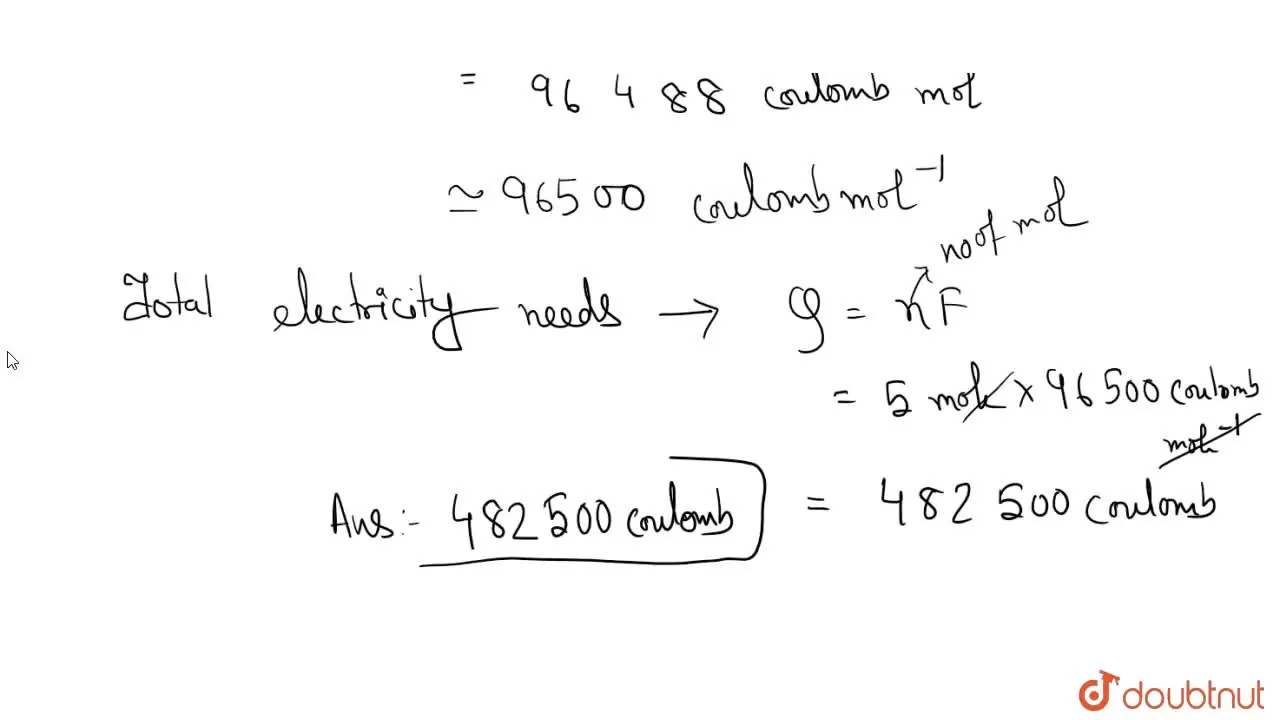 = 96 488 coulomb mol
≃ 96500 coulomb mol⁻¹
no of mol
Total electricity needs → Q = nF
= 5 mol × 96500 coulomb
mol⁻¹
Ans:- 482500 coulomb = 482 500 coulomb
doubtnut